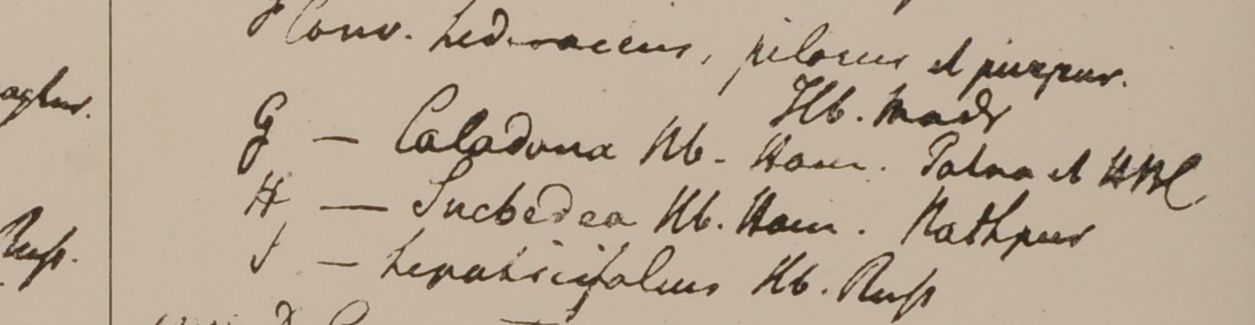 Conv. hederaceus, pilosus et purpur.
Hb. Madr
aghur.
G — Caladona Hb. Ham. Patna et HBC
H — Sucbedea Hb. Ham. Nathpur
Russ.
I — hepaticifolius Hb. Russ